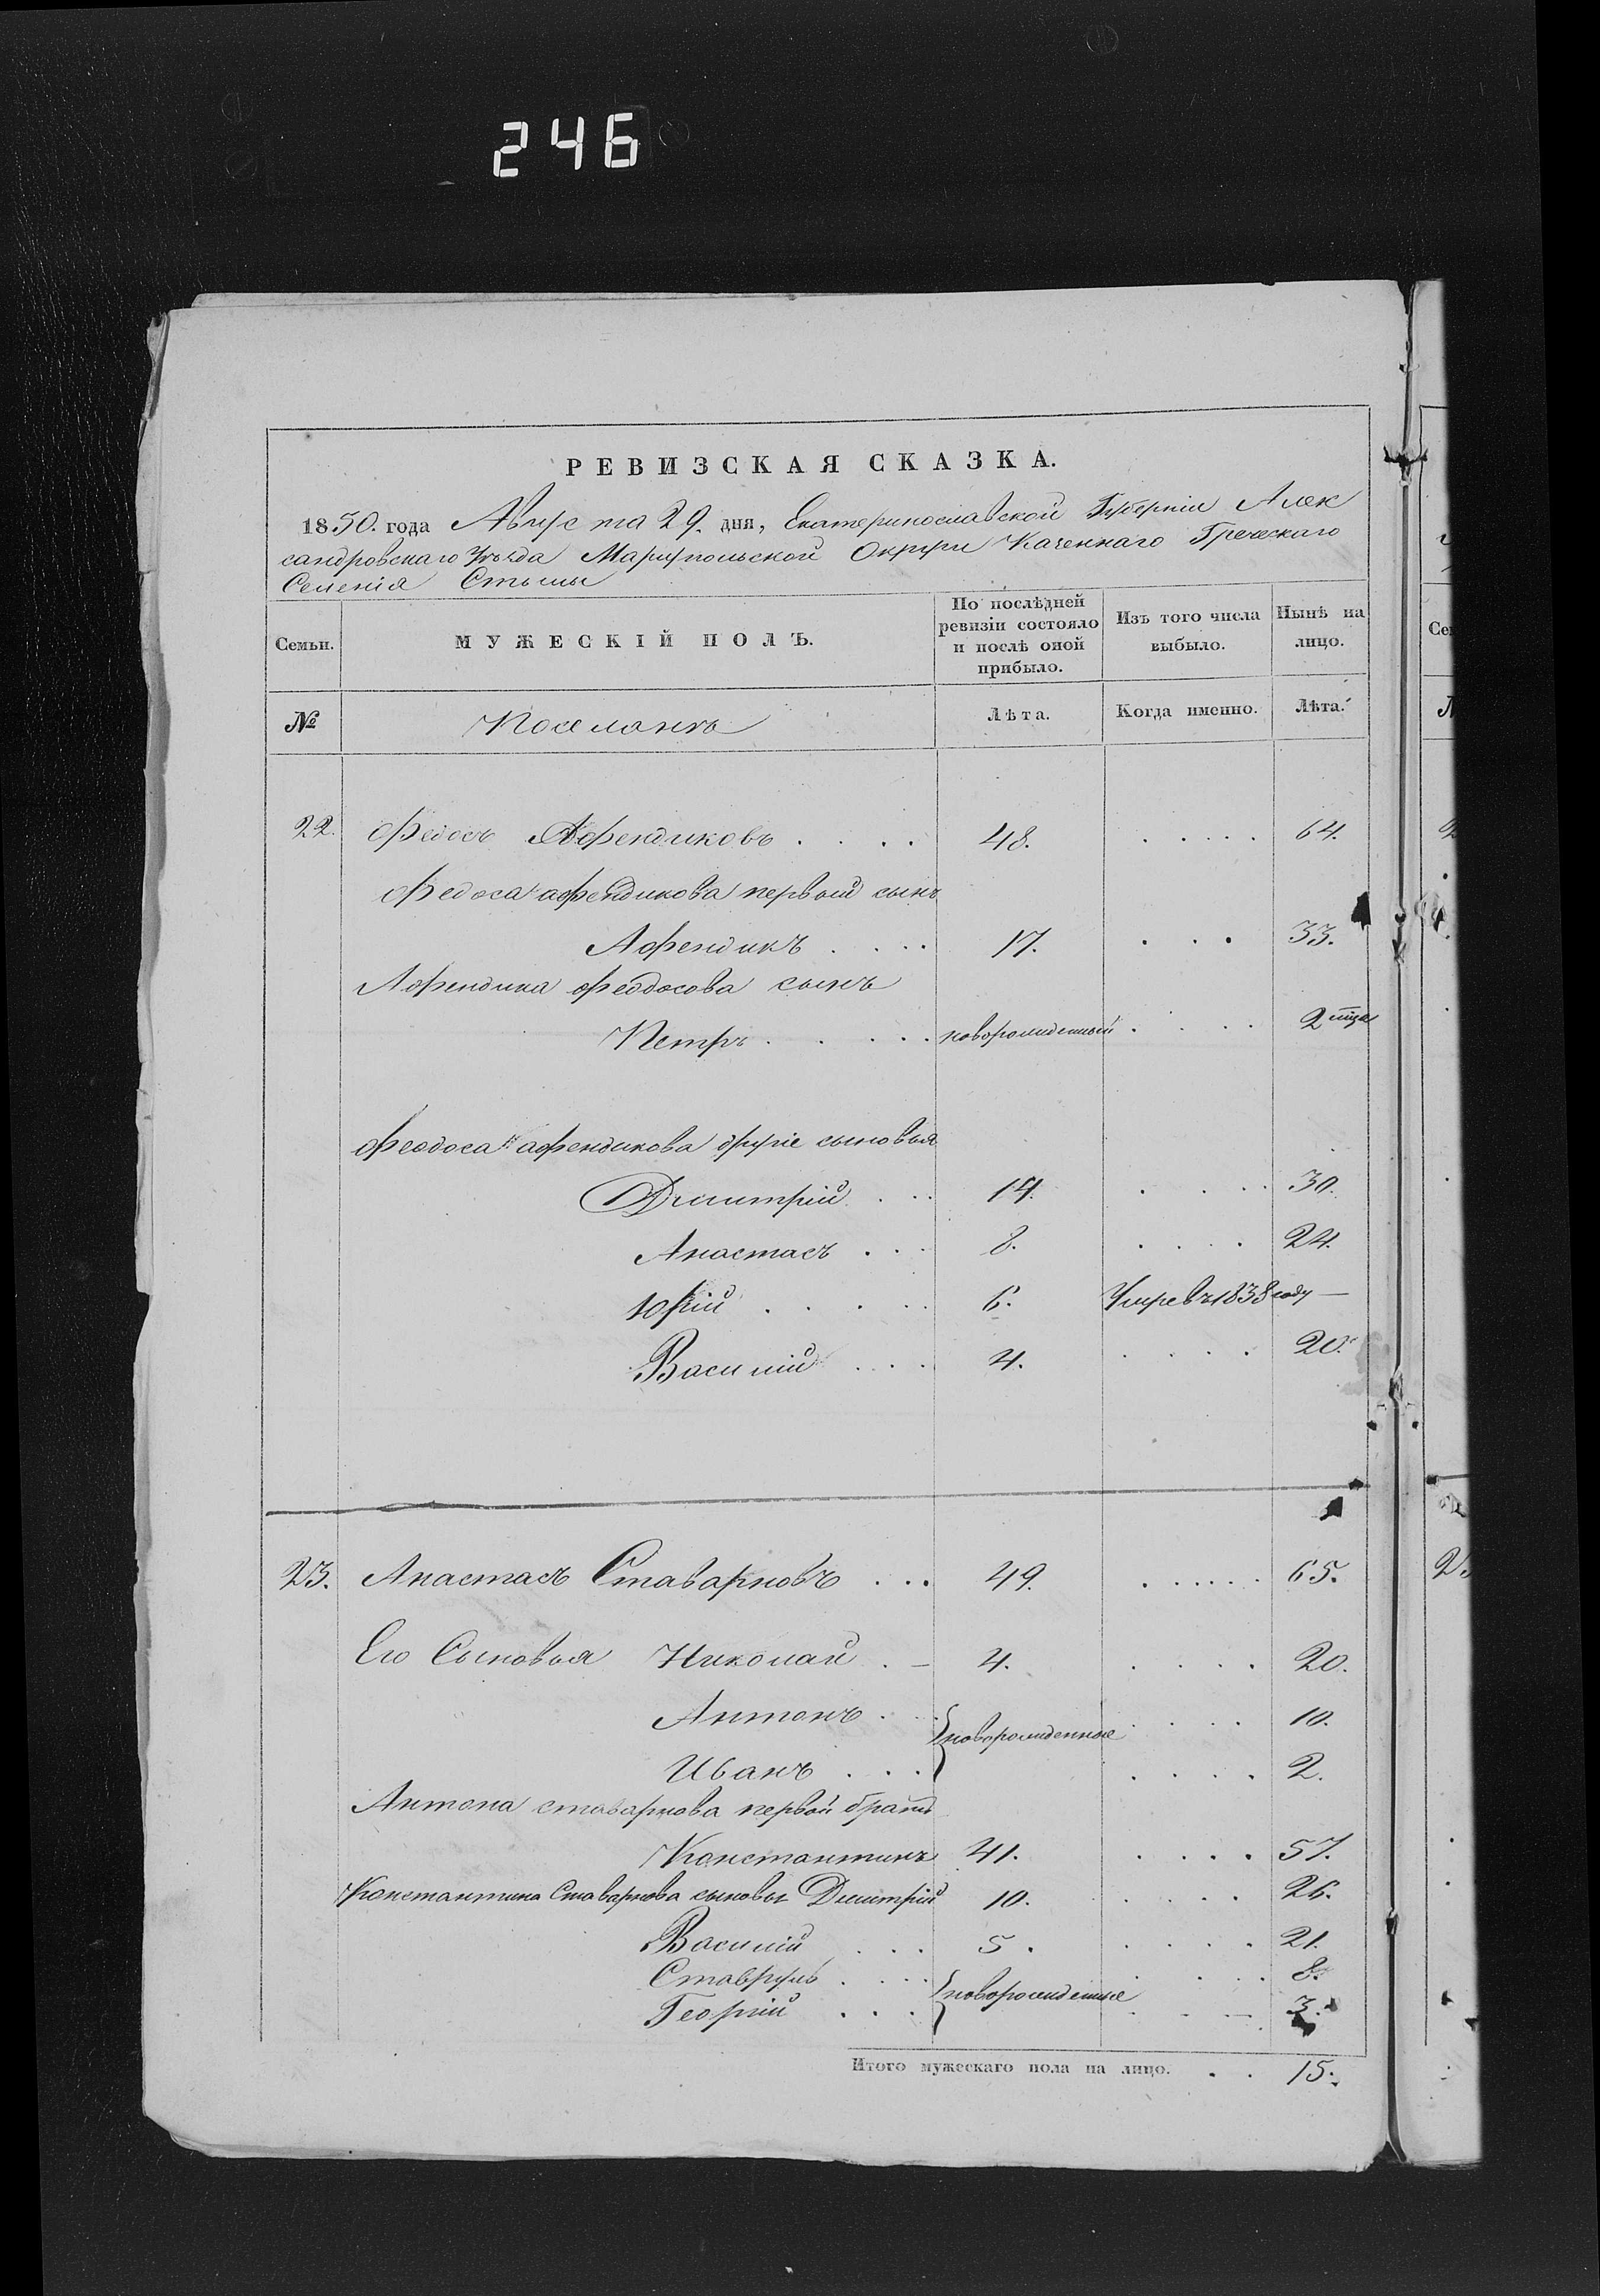 246
РЕВИЗСКАЯ СКАЗКА.
1850. года Августа 29. дня, Екатеринославской Губерніи Алек
сандровскаго Уѣзда Маріупольской Округи Казеннаго Греческаго
Селенія Стылы
Семьи.
МУЖЕСКІЙ ПОЛЪ.
По послѣдней ревизіи состояло и послѣ оной прибыло.
Изъ того числа выбыло.
Нынѣ на лицо.
№
Поселянъ
Лѣта.
Когда именно.
Лѣта.
22. Федосъ Афендиковъ . . . . 48. . . . . 64.
Федоса Афендикова первой сынъ
Афендикъ . . . . 17. . . . 33.
Афендика Феодосова сынъ
Петръ . . . . . новорожденный . . . 2
Феодоса Афендикова другіе сыновья
Дмитрій . . . 14. . . . . 30.
Анастасъ . . . 8. . . . . 24.
Юрій . . . . . 6. Умре въ 1838 году —
Василій . . . . 4. . . . . 20.
23. Анастасъ Ставариновъ . . . 49. . . . . . 65.
Его Сыновья Николай . — 4. . . . . 20.
Антонъ . . . новорожденные . . . . 10.
Иванъ . . . . . . . 2.
Антона ставаринова первой братъ
Константинъ 41. . . . . 57.
Константина Ставаринова сыновья Дмитрій 10. . . . . 26.
Василій . . . 5. . . . . 21.
Ставрулъ . . . . новорожденные . . . . 8.
Георгій . . . . . — 3.
Итого мужескаго пола на лицо. . . 15.